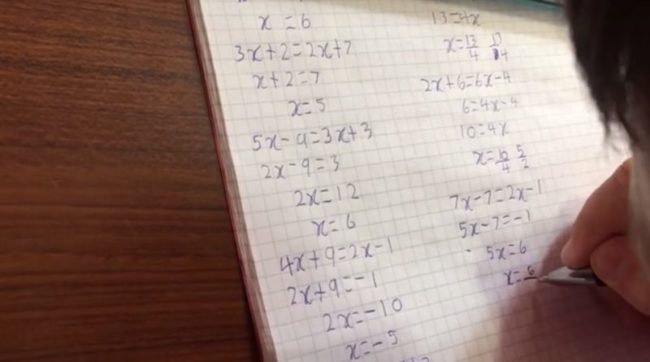 x = 6
3x+2=2x+7
x+2=7
x=5
5x-9=3x+3
2x-9=3
2x=12
x=6
4x+9=2x-1
2x+9=-1
2x=-10
x=-5
13=4x
x=13/4
2x+6=6x-4
6=4x-4
10=4x
x=10/4 5/2
7x-7=2x-1
5x-7=-1
5x=6
x=6/